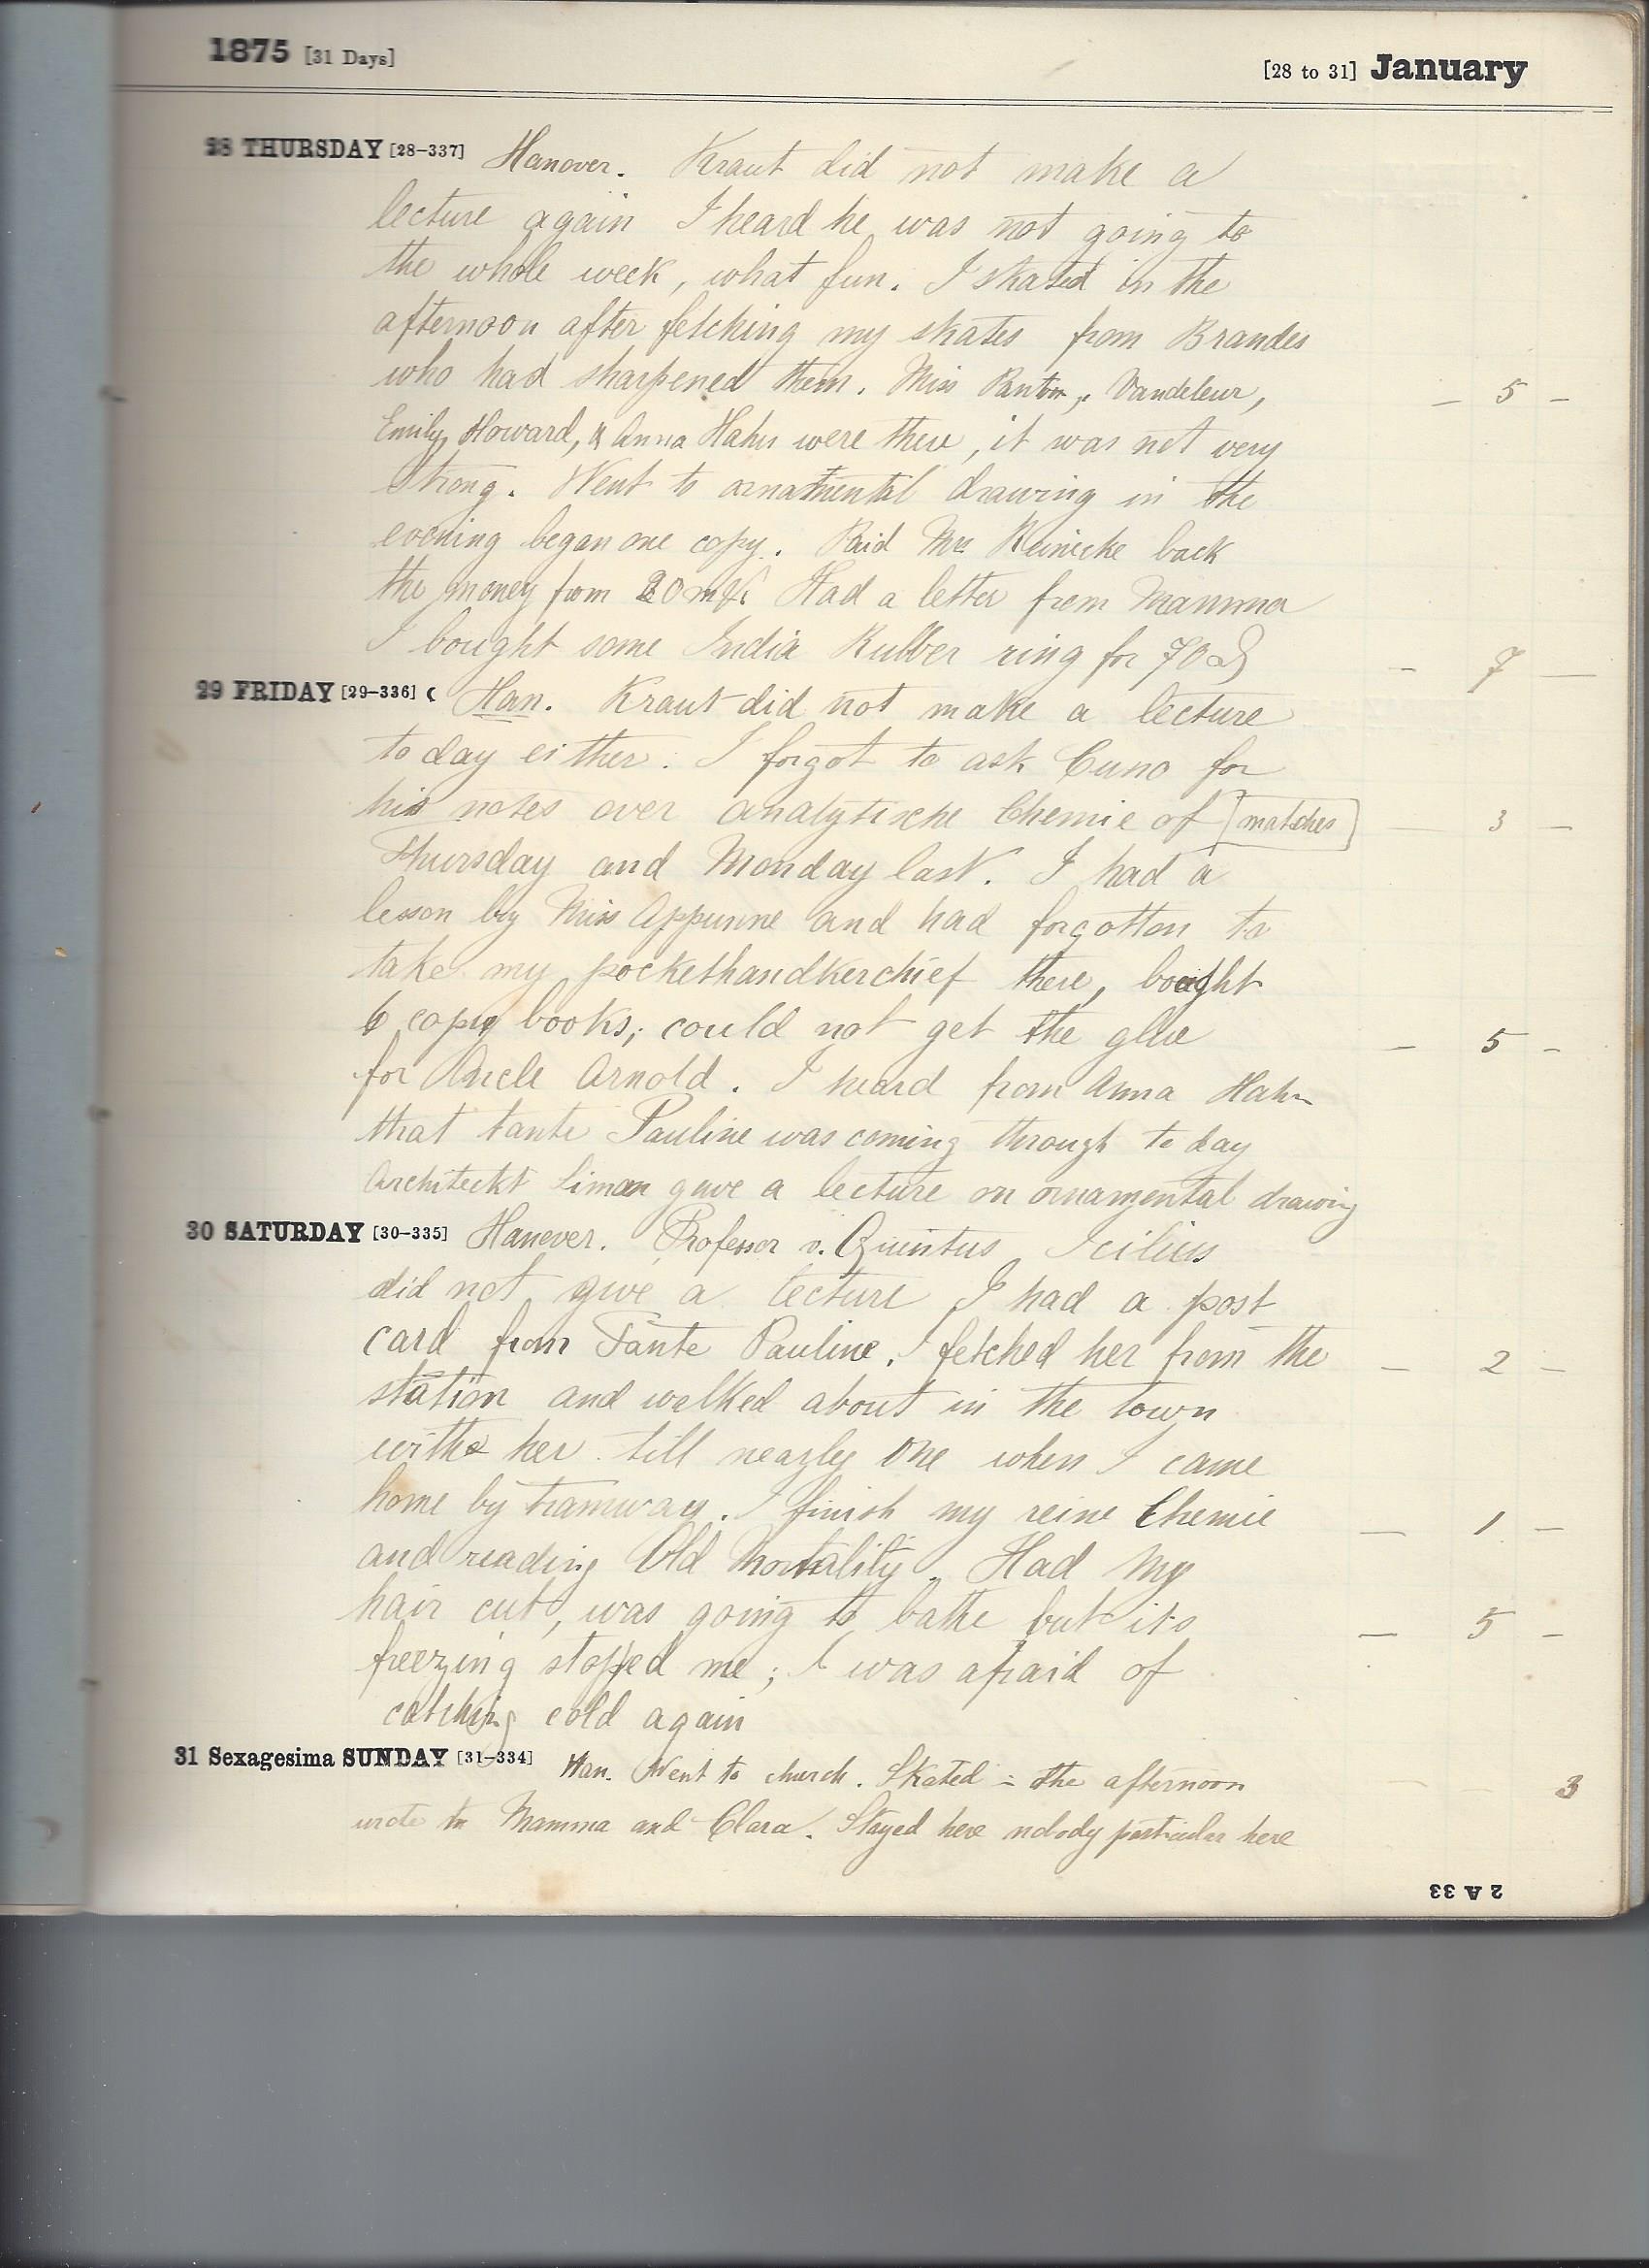 1875 [31 Days]
[28 to 31] January
28 THURSDAY [28-337] Hanover. Kraut did not make a
lecture again I heard he was not going to
the whole week, what fun. I skated in the
afternoon after fetching my skates from Brandes
who had sharpened them. Miss Panton, Vandeleur, — 5 —
Emily, Howard, & Anna Hahn were there, it was not very
strong. Went to ornamental drawing in the
evening began one copy. Paid Mrs Reinicke back
the money from 20 mk. Had a letter from Mamma
I bought some India Rubber ring for 70 ₰ — 7 —
29 FRIDAY [29-336] ☾ Han. Kraut did not make a lecture
to day either. I forgot to ask Cuno for
his notes over analytische Chemie of [matches] — 3 —
Thursday and Monday last. I had a
lesson by Miss Appunne and had forgotton to
take my pockethandkerchief there, bought
6 copy books; could not get the glue — 5 —
for Uncle Arnold. I heard from Anna Hahn
that tante Pauline was coming through to day
Architeckt Liman gave a lecture on ornamental drawing
30 SATURDAY [30-335] Hanover. Professor v. Quintus Icilius
did not give a lecture I had a post
card from Tante Pauline, I fetched her from the — 2 —
station and walked about in the town
with her till nearly one when I came
home by tramway. I finish my reine Chemie — 1 —
and reading Old Mortality. Had my
hair cut, was going to bathe but its — 5 —
freezing stopped me; I was afraid of
catching cold again
31 Sexagesima SUNDAY [31-334] Han. Went to church. Skated = the afternoon — 3
wrote to Mamma and Clara. Stayed here nobody particular here
2 A 33